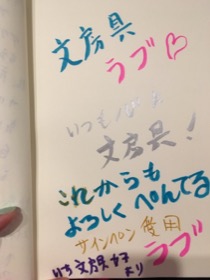 文房具
ラブ♡
いつも
文房具!
これからも
よろしく ぺんてる
サインペン 愛用
ラブ
いち文具好き
より